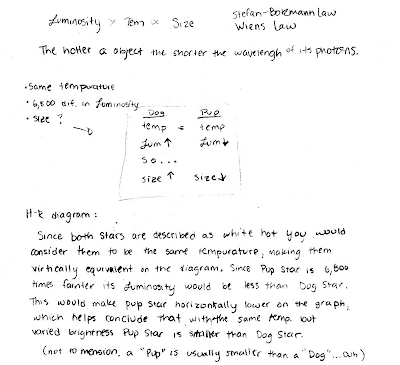 Luminosity ∝ Tem ∝ Size
Stefan-Boltzmann Law
Wiens Law
The hotter a object the shorter the wavelengh of its photons.
• Same tempurature
• 6,800 dif. in Luminosity
• size ?
Dog Pup
temp = temp
Lum ↑ Lum ↓
so...
size ↑ size ↓
H-R diagram:
Since both Stars are described as white hot you would
consider them to be the same tempurature, making them
virtically equivalent on the diagram. Since Pup Star is 6,800
times fainter its Luminosity would be less than Dog Star.
This would make pup Star horizontally lower on the graph,
which helps conclude that with the same temp. but
varied brightness Pup Star is smaller than Dog Star.
(not to mension, a "Pup" is usually smaller than a "Dog"... duh)